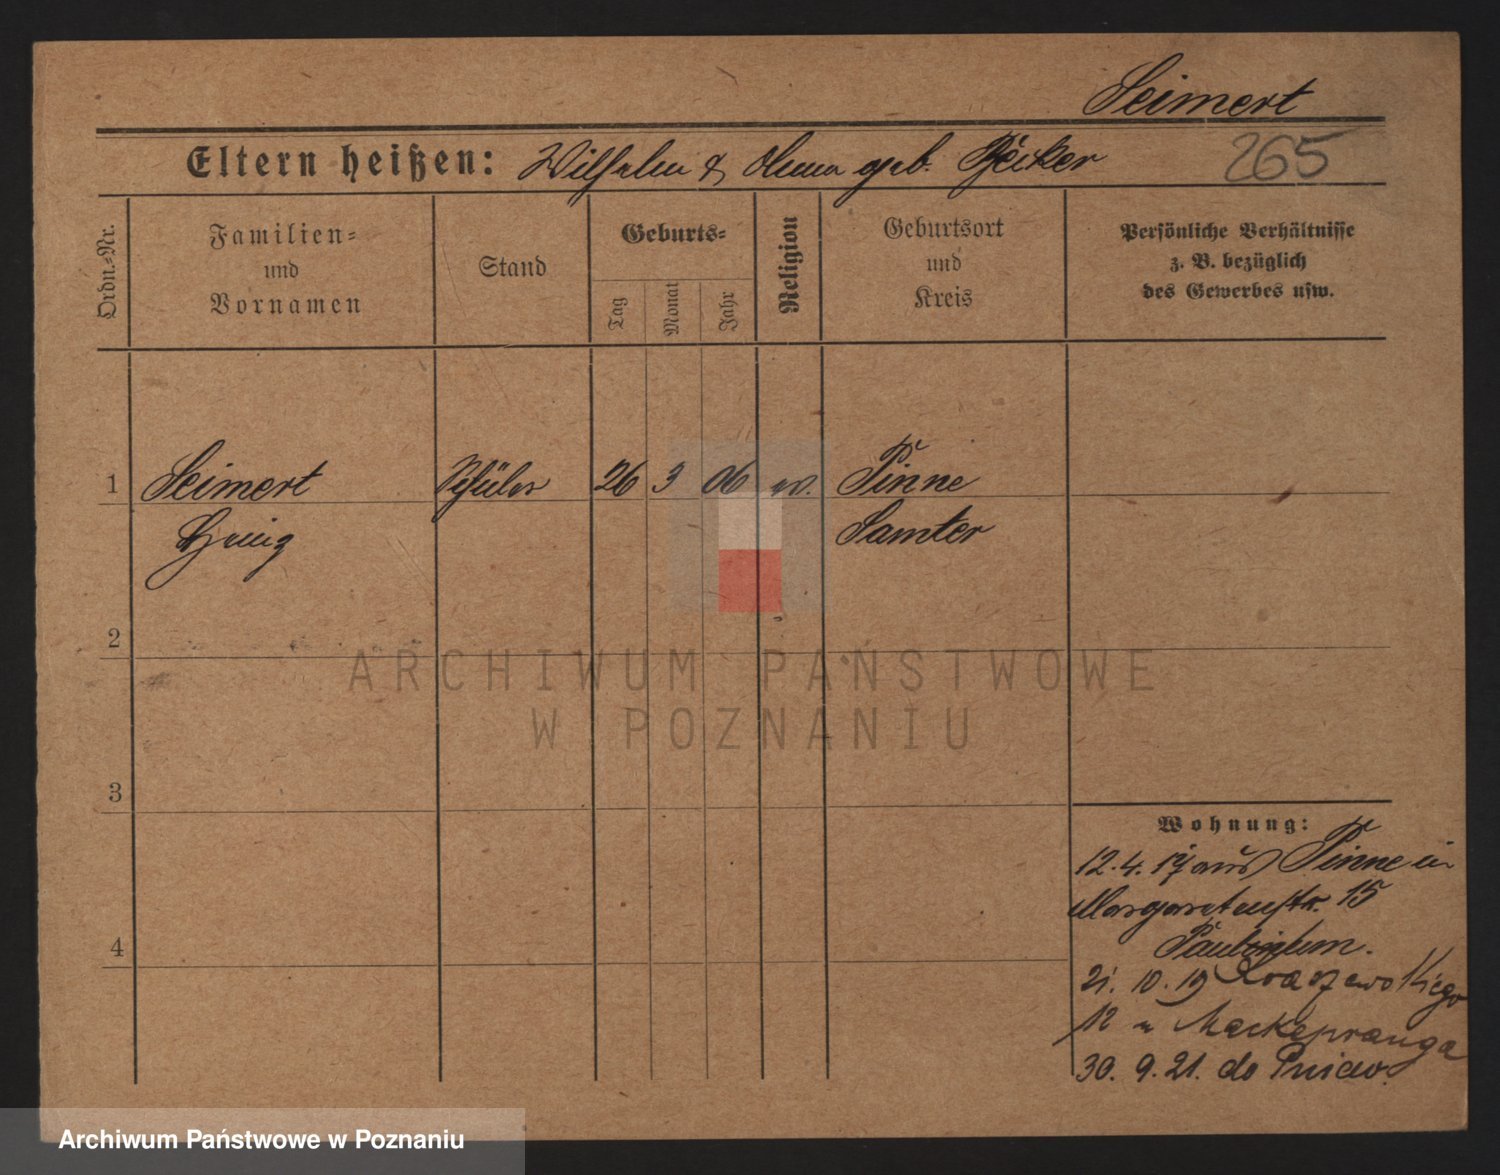 Seimert
Eltern heißen: Wilhelm & geb. Becker
265
Ordn.-Nr.
Familien-
und
Vornamen
Stand
Geburts-
Tag
Monat
Jahr
Religion
Geburtsort
und
Kreis
Persönliche Verhältnisse
z. B. bezüglich
des Gewerbes usw.
1 Seimert Schüler 26 3 06 ev. Pinne
Samter
2
3
4
ARCHIWUM PAŃSTWOWE
W POZNANIU
Wohnung:
12.4.17 aus Pinne in
Margaretenstr. 15
Paulinum.
21. 10. 19 Kraszewskiego
12 u Mackepranga
30. 9. 21. do Pniew.
Archiwum Państwowe w Poznaniu